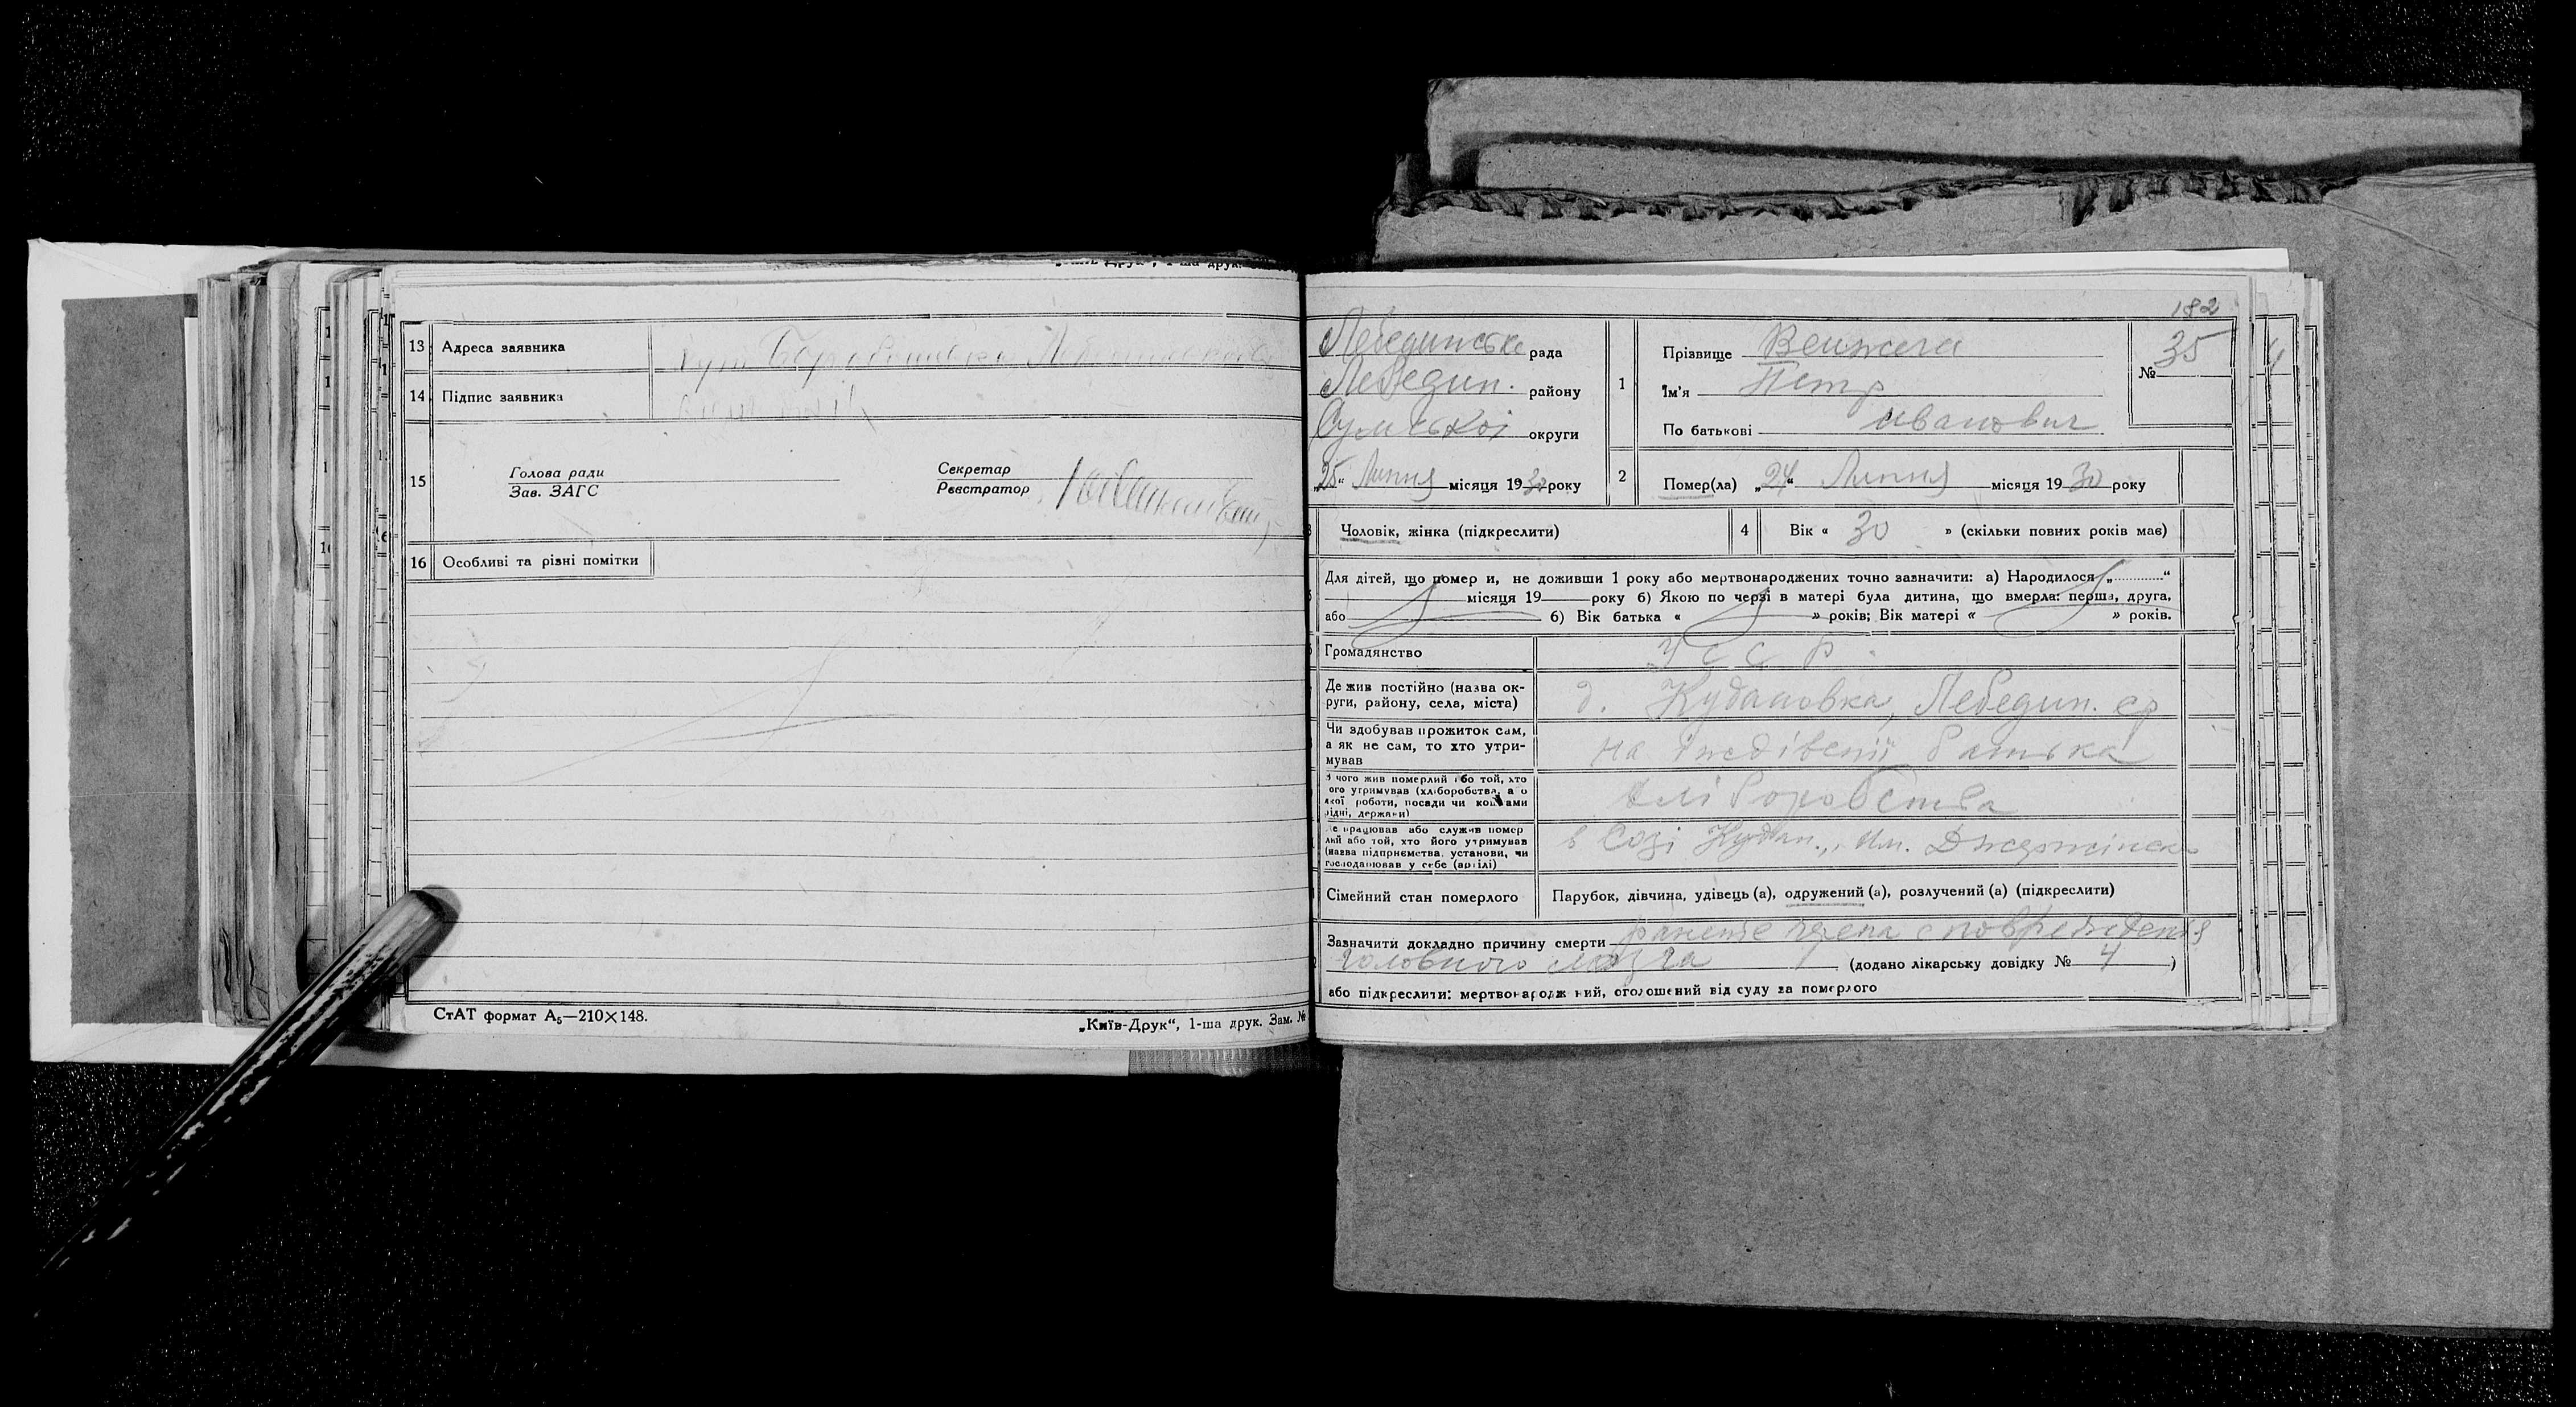 13 Адреса заявника хут
14 Підпис заявника
15 Голова ради
Зав. ЗАГС
Секретар
Реєстратор
16 Особливі та різні помітки
СтАТ формат А5—210×148.
„Київ-Друк“, 1-ша друк. Зам. №
182
Лебединська рада
Лебедин. району
Сумської округи
„25“ Липня місяця 1930 року
1 Прізвище
Ім'я Петр
По батькові Иванович
№ 35
2 Помер(ла) „24“ Липня місяця 1930 року
Чоловік, жінка (підкреслити)
4 Вік « 30 » (скільки повних років має)
Для дітей, що помер и, не доживши 1 року або мертвонароджених точно зазначити: а) Народилося „...........“
місяця 19 року б) Якою по черзі в матері була дитина, що вмерла: перша, друга,
або б) Вік батька « » років; Вік матері « » років.
Громадянство У С С Р.
Де жив постійно (назва ок-
руги, району, села, міста) д. Кудановка, Лебедин. ср
Чи здобував прожиток сам,
а як не сам, то хто утри-
мував на іждівенії батька
чого жив померлий або той, хто
ого утримував (хліборобства, а о
якої роботи, посади чи коштами
рідні, держави) хліборобства
е працював або служив помер
лий або той, хто його утримував
(назва підприємства, установи, чи
господарював у себе (артілі) в Созі Кудан., им.
Сімейний стан померлого Парубок, дівчина, удівець (а), одружений (а), розлучений (а) (підкреслити)
Зазначити докладно причину смерти ранение черепа с повреждения
головного мозга (додано лікарську довідку № 4 )
або підкреслити: мертвонародж ний, оголошений від суду за померлого